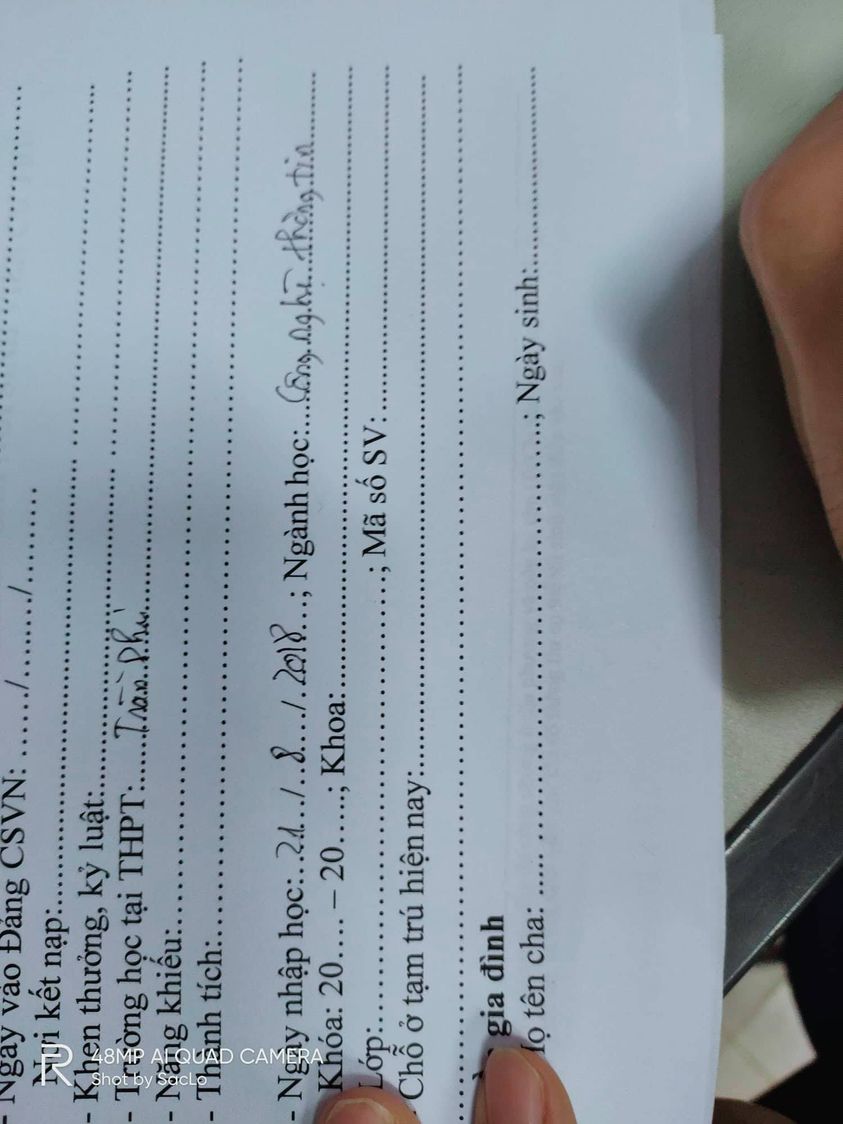 - Ngày vào Đảng CSVN: ....../......../.........
Nơi kết nạp:..........................................................
- Khen thưởng, kỷ luật:..........................................................
- Trường học tại THPT:......Trần Phú..........................................................
- Năng khiếu:..........................................................
- Thành tích:..........................................................
- Ngày nhập học:..21../..8.../.2018...; Ngành học:...Công nghệ thông tin..........
Khóa: 20.... – 20 ....; Khoa:..........................................................
Lớp:..........................................; Mã số SV:..........................................
- Chỗ ở tạm trú hiện nay:..........................................................
..........................................................
gia đình
Họ tên cha: ..... ..........................................; Ngày sinh:..........................
48MP AI QUAD CAMERA
Shot by SacLo